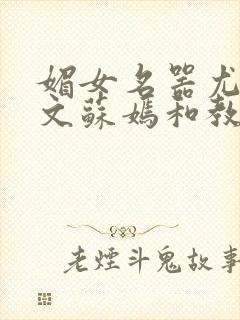 媚女名器尤
文蘇媽和教
老煙斗鬼故事